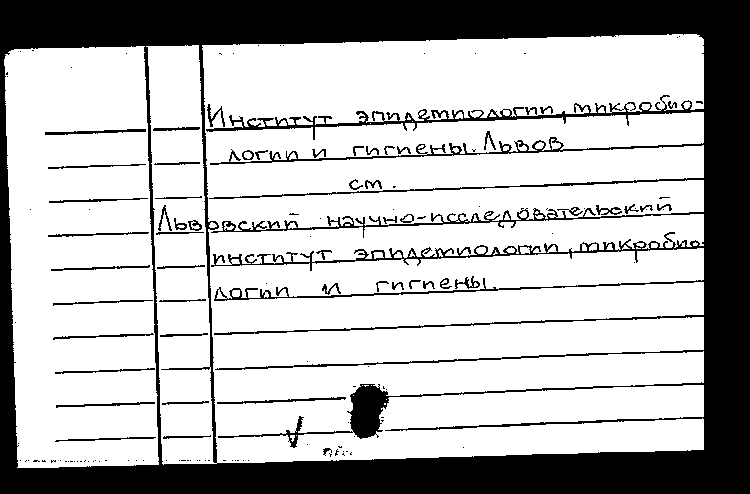 Институт эпидемиологии, микробио-
логии и гигиены. Львов
см.
Львовский научно-исследовательский
институт эпидемиологии, микробио-
логии и гигиены.